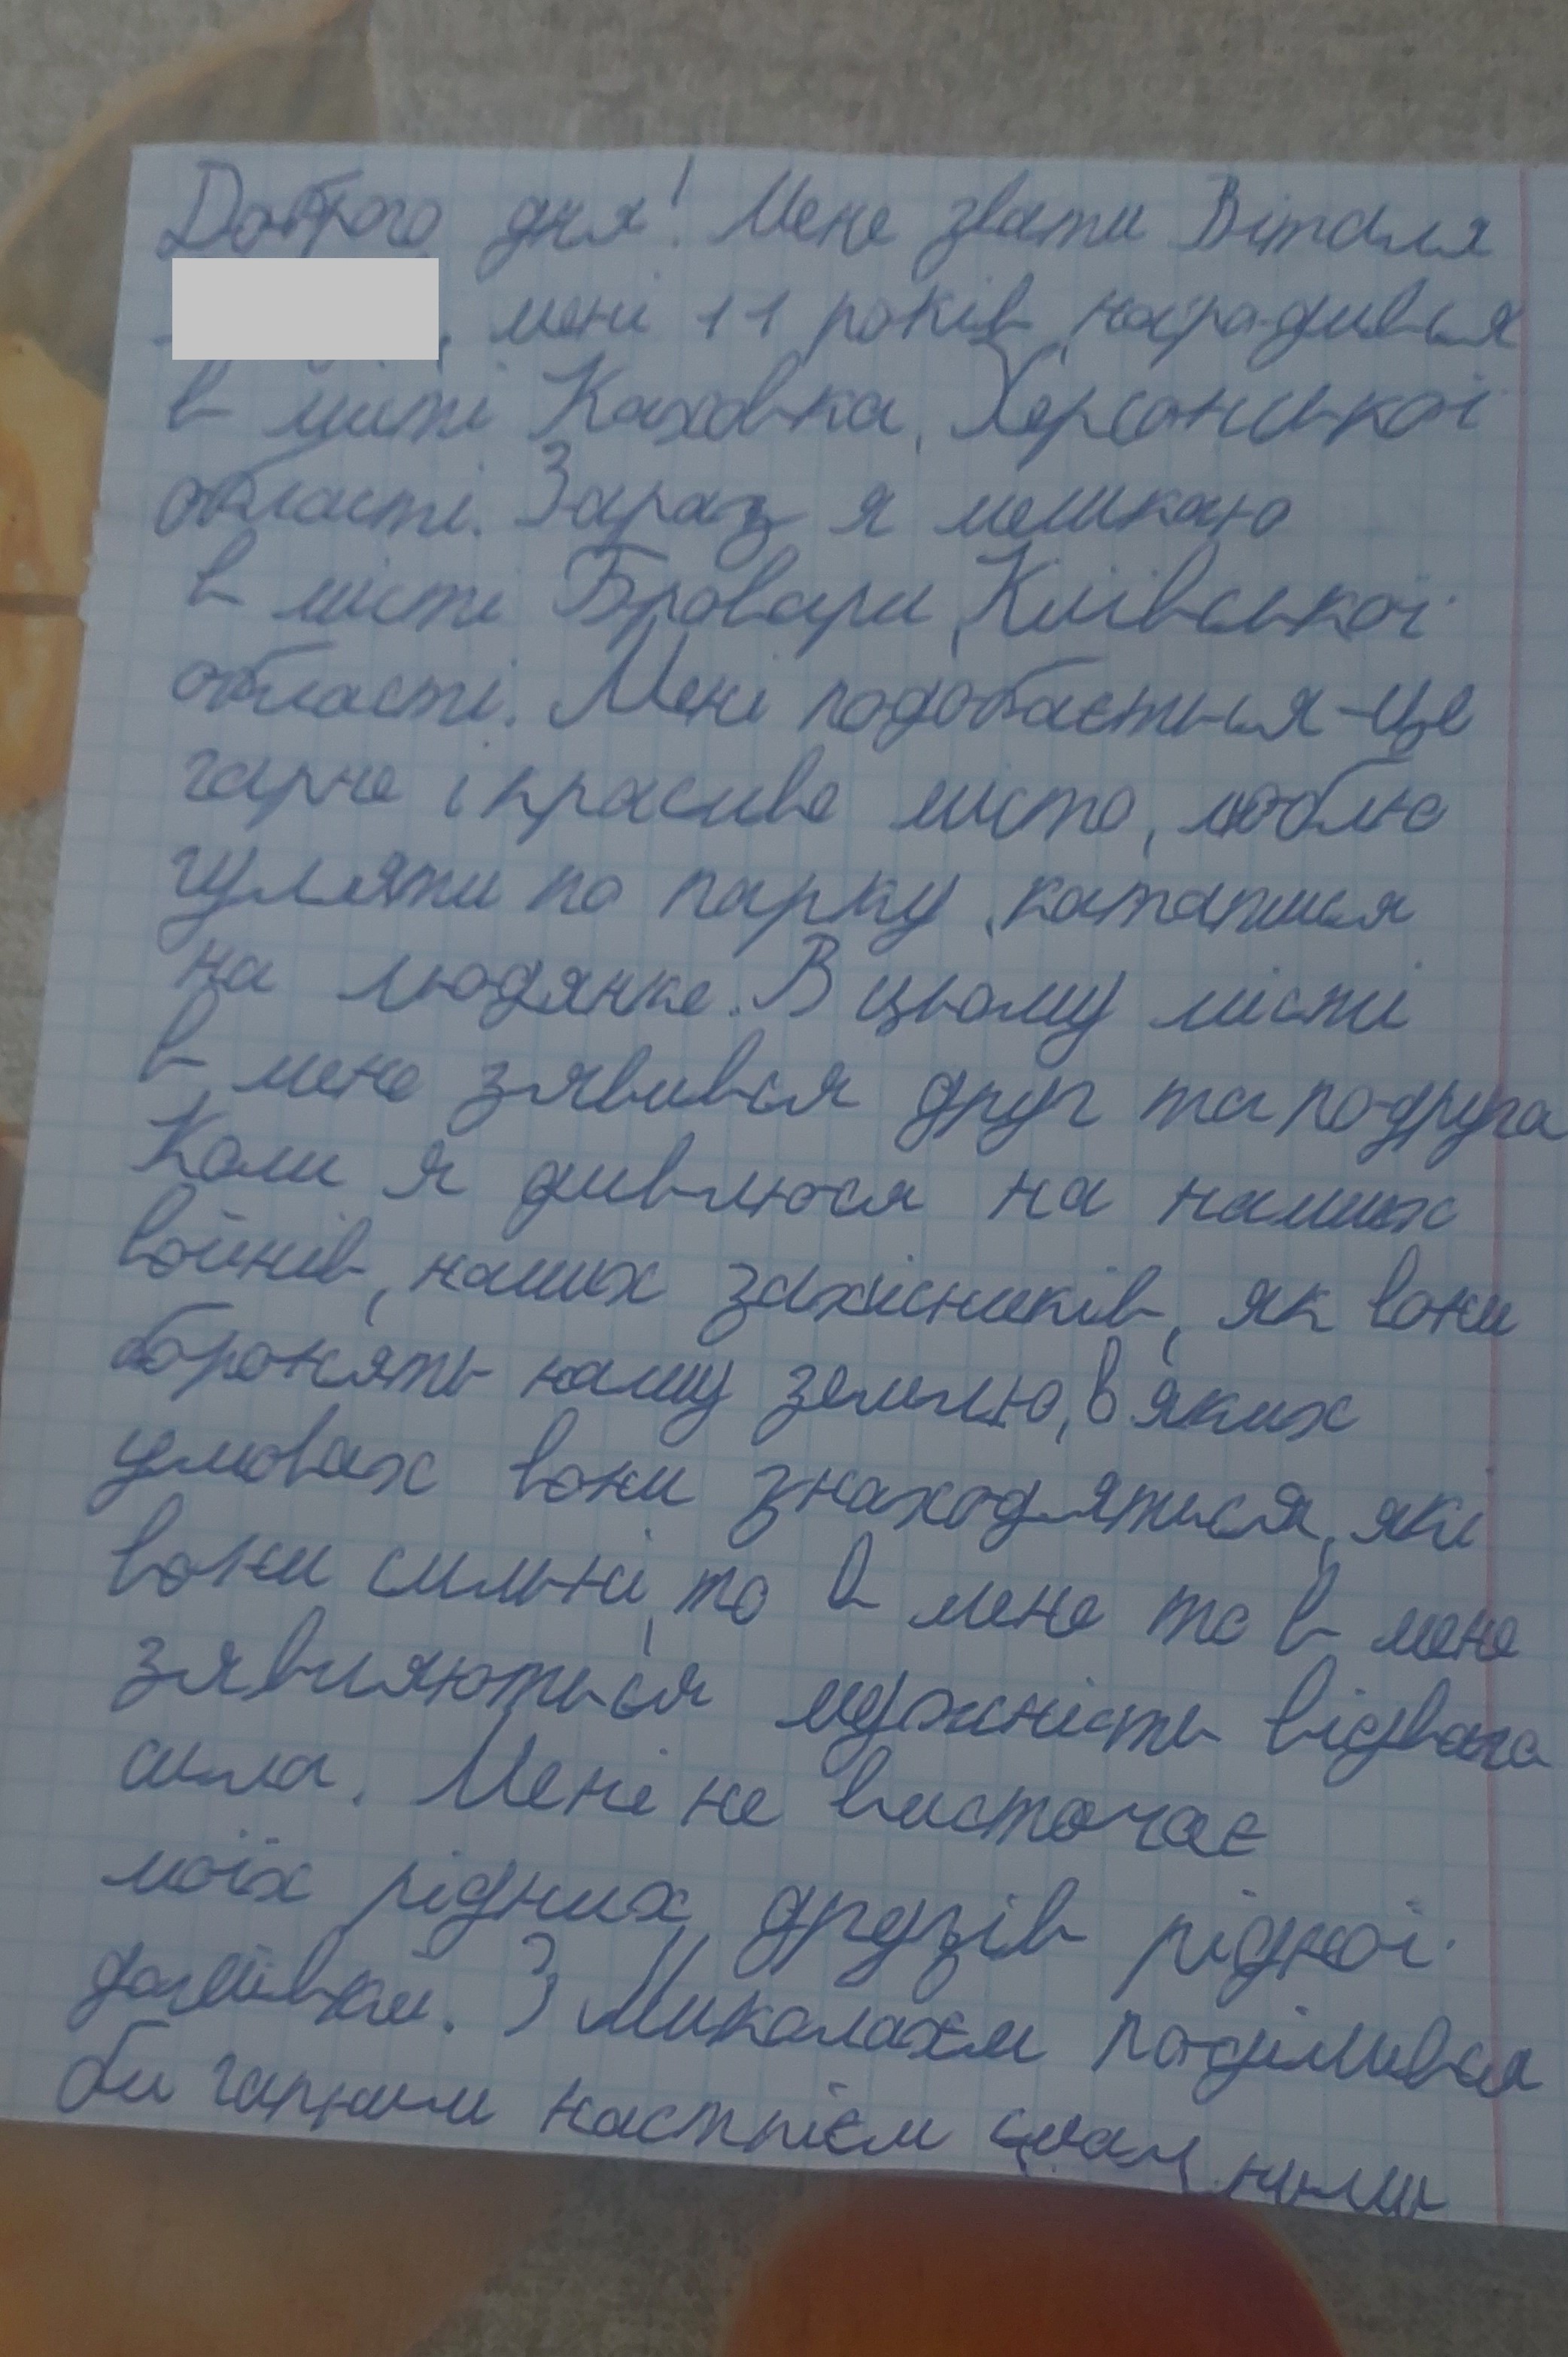 Доброго дня! Мене звати Віталя
, мені 11 років, народився
в місті Каховка, Херсонської
області. Зараз я мешкаю
в місті Бровари, Кліївської
області. Мені подобається - це
гарне і красиве місто, люблю
гуляти по парку, кататися
на людянке. В цьому місті
в мене зявився друг та подруга
Коли я дивлюся на наших
войнів, наших захісників, як вони
боронять нашу землю, в яких
умовах вони знаходятися, які
вони сильні, то в мене то в мене
зявляються мужність відвага
сила. Мені не вистачає
моїх рідних, друзів рідної
домівки. З Миколаєм поділився
би гарним настрієм смачними